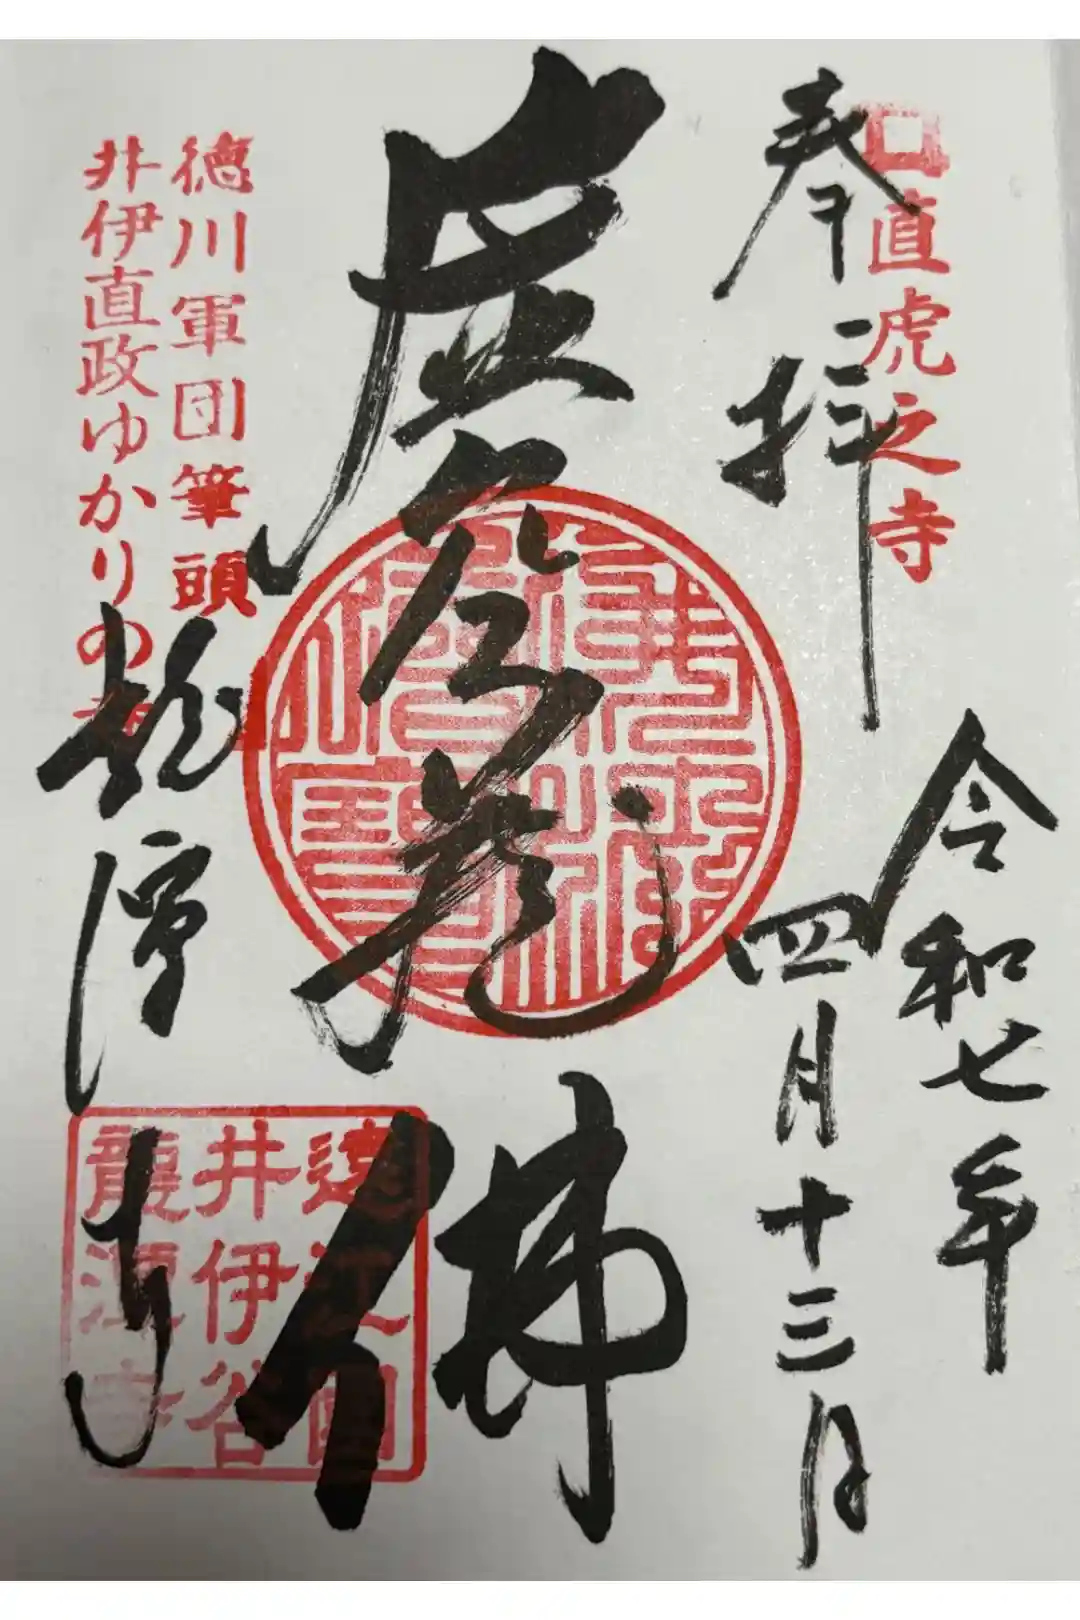 直虎之寺
奉拝
令和七年
四月十三日
虚空蔵佛
徳川軍団筆頭
井伊直政ゆかりの寺
龍潭寺
遠江国
井伊谷
龍潭寺